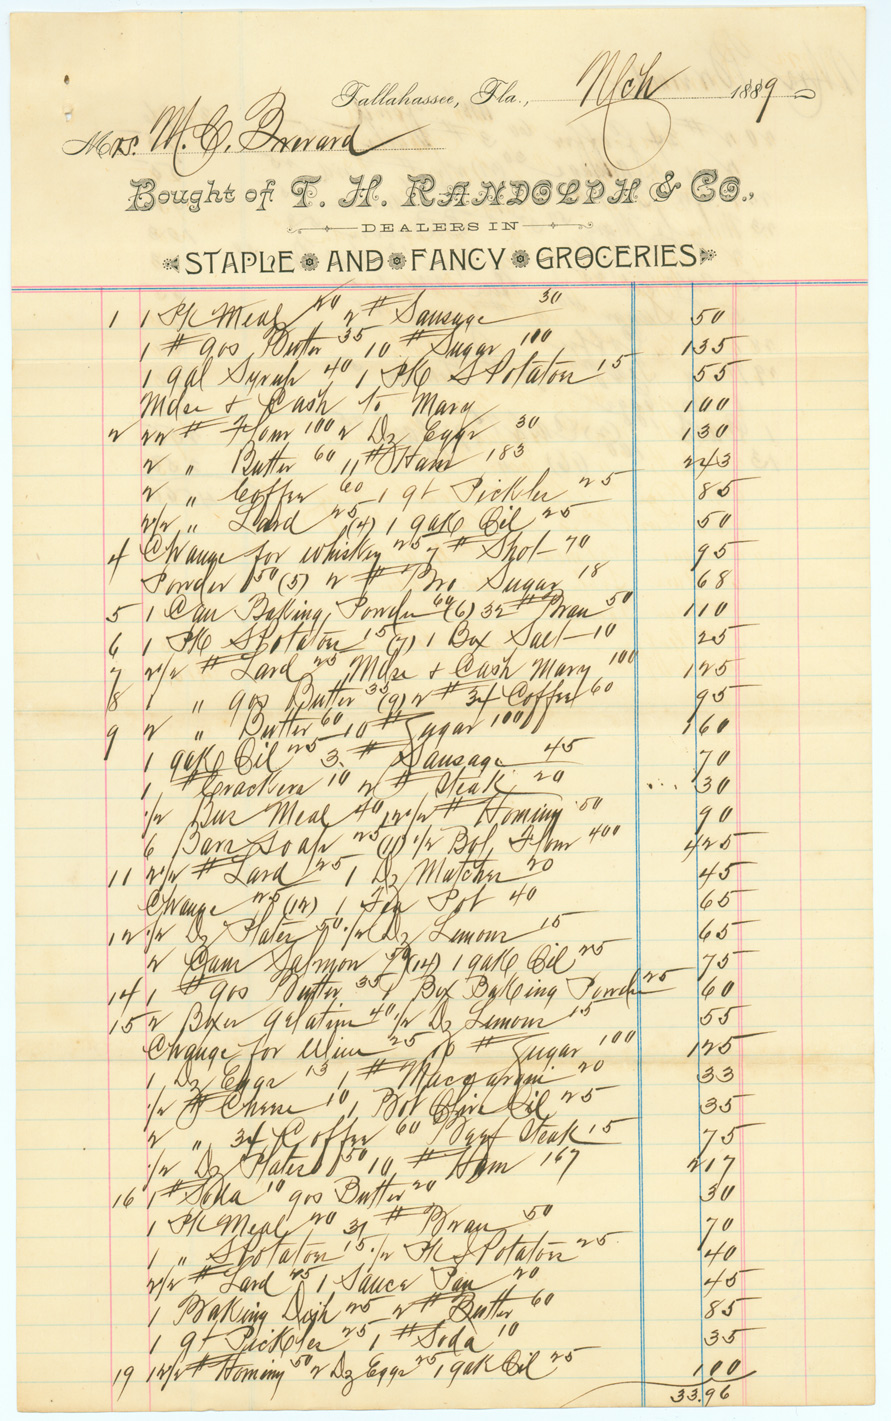 Tallahassee, Fla., Mch 1889
Mrs. M. C. Brevard
Bought of T. H. RANDOLPH & CO.,
DEALERS IN
STAPLE AND FANCY GROCERIES
1 1 Pk Meal 20 2 # Sausage 30 50
1 # gos Butter 35 10 # Sugar 100 135
1 gal Syrup 40 1 Pk S Potatoes 15 55
Mdse & Cash to Mary 100
2 22 # Flour 100 2 Dz Eggs 30 130
2 " Butter 60 11 # Ham 183 243
2 " Coffee 60 1 qt Pickles 25 85
2 1/2 " Lard 25 (4) 1 gak Oil 25 50
4 Change for whiskey 25 7 # Shot 70 95
Powder 50 (5) 2 # Bro Sugar 18 68
5 1 Can Baking Powder 60 (6) 32 # Bran 50 110
6 1 Pk S Potatoes 15 (7) 1 Box Salt 10 25
7 2 1/2 # Lard 25 Mdse & Cash Mary 100 125
8 1 " gos Butter 35 (9) 2 # 34 Coffee 60 95
9 2 " Butter 60 10 # Sugar 100 160
1 gak Oil 25 3 # Sausage 45 70
1 # Crackers 10 2 # Steak 20 30
1/2 Bus Meal 40 12 1/2 # Hominy 50 90
6 Bars Soap 25 (11) 1/2 Bbl Flour 400 425
11 2 1/2 # Lard 25 1 Dz Matches 20 45
Change 25 (12) 1 Pot 40 65
12 1/2 Dz Plates 50 1/2 Dz Lemons 15 65
2 Cans Salmon (14) 1 gak Oil 25 75
14 1 # gos Butter 35 1 Box Baking Powder 25 60
15 2 Boxes Gelatine 40 1/2 Dz Lemons 15 55
Change for Wine 25 10 # Sugar 100 125
1 Dz Eggs 13 1 # Maccaroni 20 33
1/2 # Cheese 10 1 Bot Olive Oil 25 35
2 " 34 Coffee 60 Beef Steak 15 75
1/2 Dz Plates 50 10 # Ham 167 217
16 1 # Soda 10 gos Butter 20 30
1 Pk Meal 20 31 # Bran 50 70
1 " S Potatoes 15 1/2 Pk I Potatoes 25 40
2 1/2 # Lard 25 1 Sauce Pan 20 45
1 Baking Dish 25 2 # Butter 60 85
1 qt Pickles 25 1 # Soda 10 35
19 12 1/2 # Hominy 50 2 Dz Eggs 25 1 gak Oil 25 100
33.96